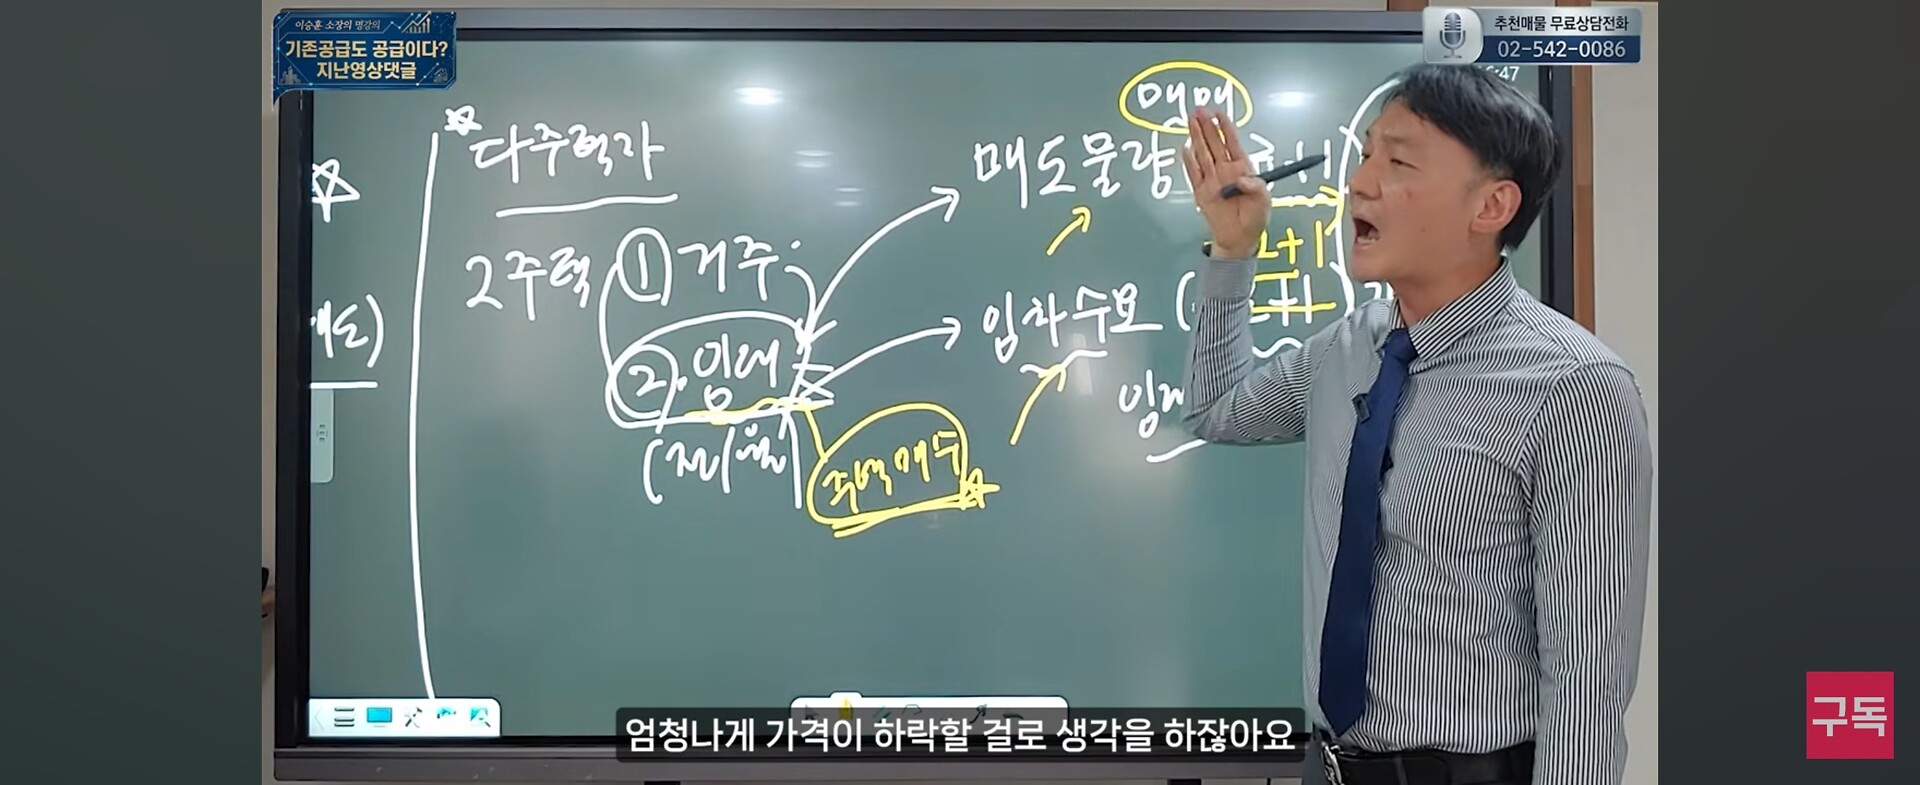 이승훈 소장의 명강의
기존공급도 공급이다?
지난영상댓글
추천매물 무료상담전화
02-542-0086
다주택자
2주택 ① 거주
② 임대
(전/월)
주택매수
매매
매도물량
+1
임차수요
+1
매도)
구독
엄청나게 가격이 하락할 걸로 생각을 하잖아요